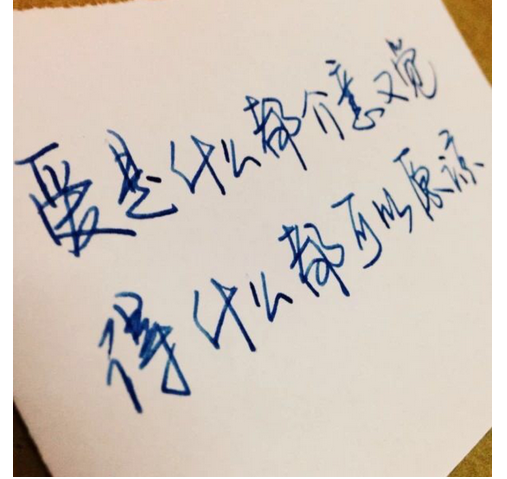 爱是什么都介意又觉
得什么都可以原谅